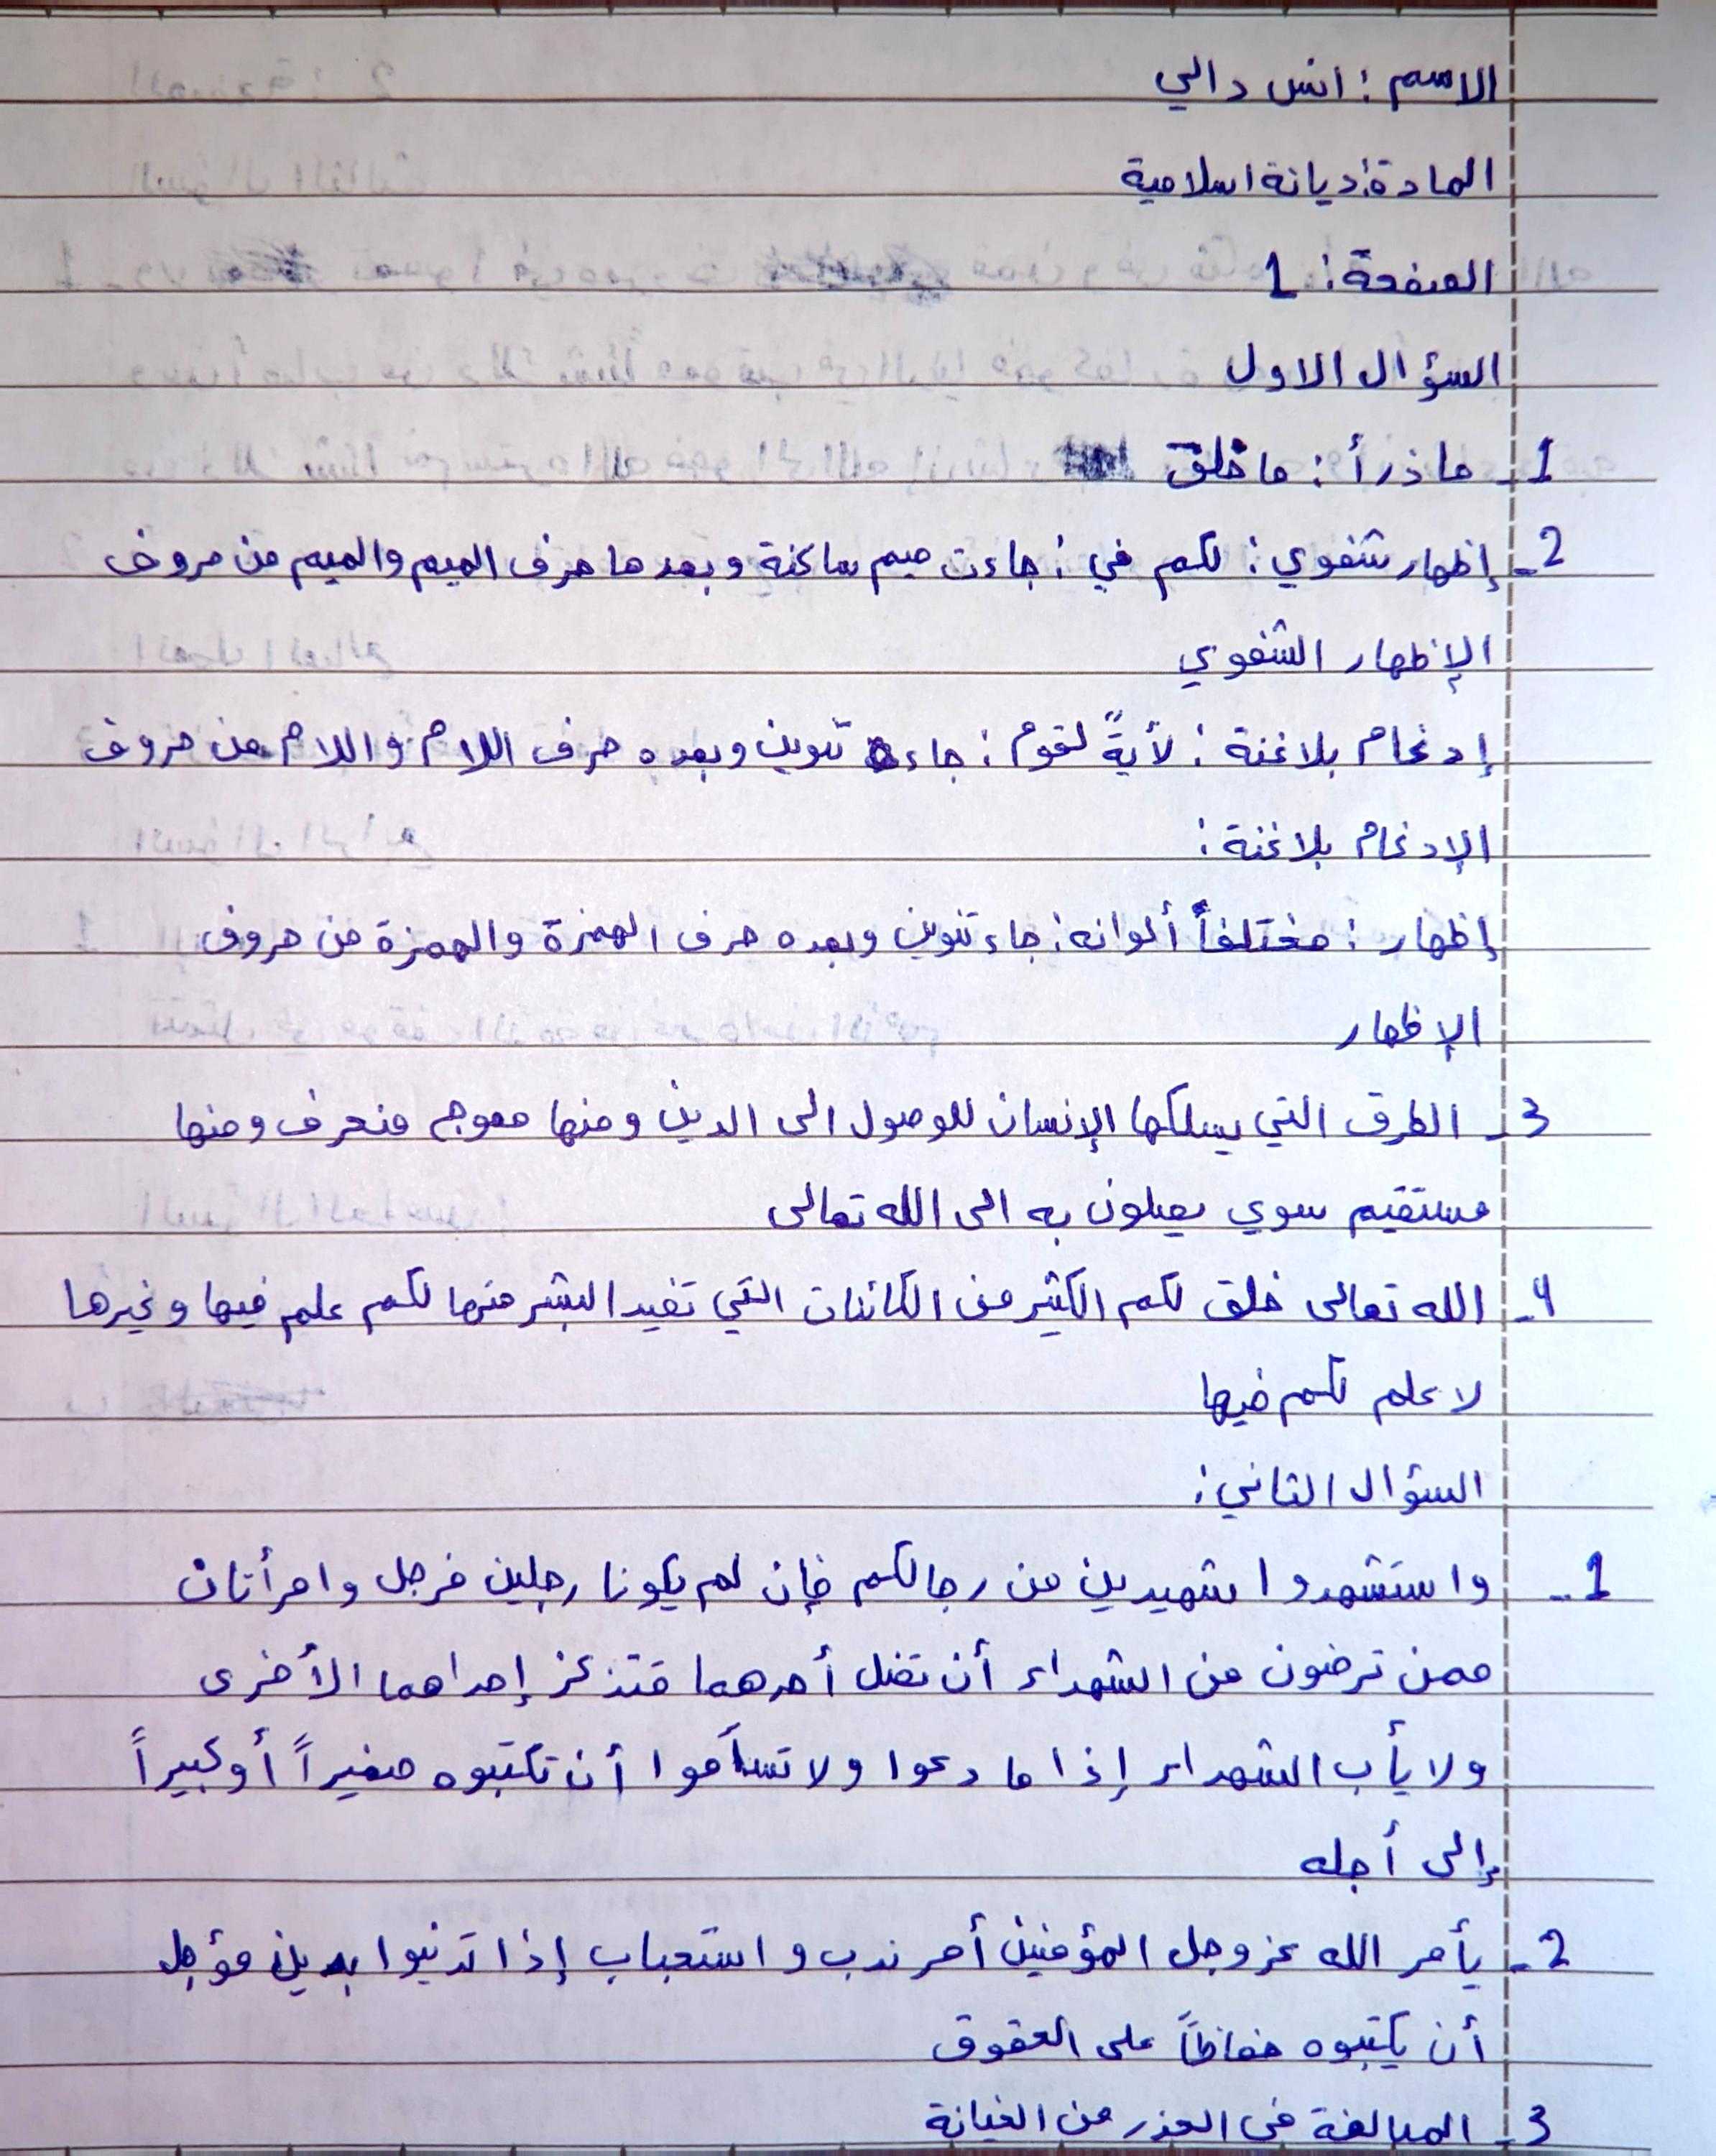 الاسم : انس دالي
المادة : ديانة اسلامية
الصفحة : 1
السؤال الاول
1- ما ذرأ : ما خلق
2- إظهار شفوي : لكم في : جاءت ميم ساكنة وبعدها حرف الميم والميم من حروف
الإظهار الشفوي
إدغام بلاغنة : لأيةً لقوم : جاء تنوين وبعده حرف اللام واللام من حروف
الإدغام بلاغنة :
إظهار : مختلفاً ألوانه : جاء تنوين وبعده حرف الهمزة والهمزة من حروف
الإظهار
3- الطرق التي يسلكها الإنسان للوصول الى الدين ومنها معوج منحرف ومنها
مستقيم سوي يصلون به الى الله تعالى
4- الله تعالى خلق لكم الكثير من الكائنات التي تفيد البشر منها لكم علم فيها وغيرها
لا علم لكم فيها
السؤال الثاني :
1- واستشهدوا شهيدين من رجالكم فإن لم يكونا رجلين فرجل وامرأتان
ممن ترضون من الشهداء أن تضل أحدهما فتذكر إحداهما الأخرى
ولا يأب الشهداء إذا ما دعوا ولا تسأموا أن تكتبوه صغيراً أو كبيراً
إلى أجله
2- يأمر الله عز وجل المؤمنين أمر ندب واستحباب إذا تدنيوا بدين مؤجل
أن يكتبوه حفاظاً على الحقوق
3- المبالغة في الحذر من الخيانة